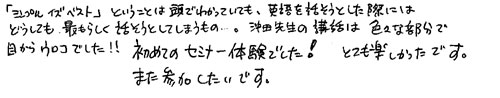 「シンプル イズ ベスト」 ということは頭でわかっていても、英語を話そうとした際には
どうしても 最もらしく 話そうとしてしまうもの…。沖田先生の講話は 色々な部分で
目からウロコでした!! 初めての セミナー体験でした! とても楽しかったです。
また参加したいです。